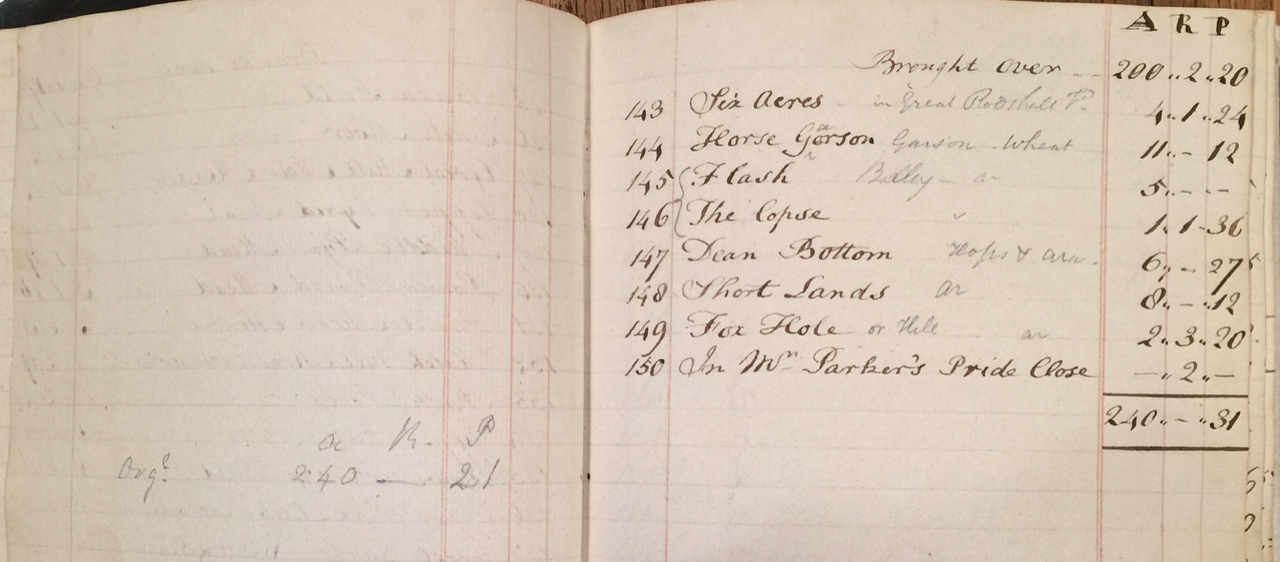 a R. P
Orgl. 240 — 21
A R P
Brought over -- 200 " 2 " 20
143 Six Acres - in Great Fd. 4 " 1 " 24
144 Horse Gorson a Garson . Wheat 11 " - 12
145 Flash - a 5 " - -
146 The Copse " 1 " 1 - 36
147 Dean Bottom Hops & Ara. 6 " - 27
148 Short Lands ar 8 " - " 12
149 Fox Hole or Hill ar 2 " 3 " 20
150 In Mrs. Parker's Pride Close — " 2 " -
240 " - " 31